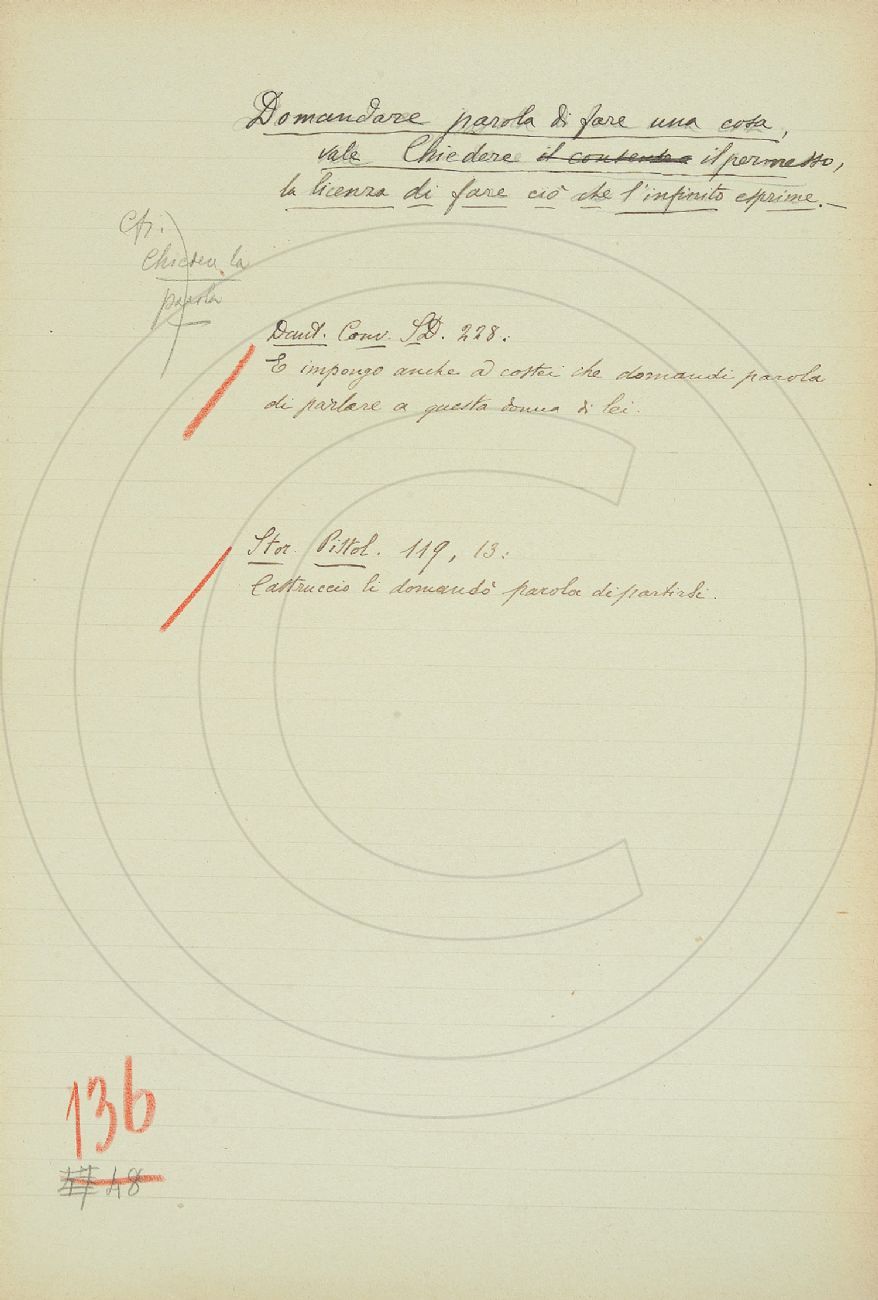 Domandare parola di fare una cosa,
vale Chiedere il consenso il permesso,
la licenza di fare ciò che l'infinito esprime.—
Cfr.
Chieder la
parola
Dant. Conv. SD. 228:
E impongo anche a costei che domandi parola
di parlare a questa donna di lei.
Stor. Pistol. 119, 13:
Castruccio li domandò parola di partirsi.
136
48